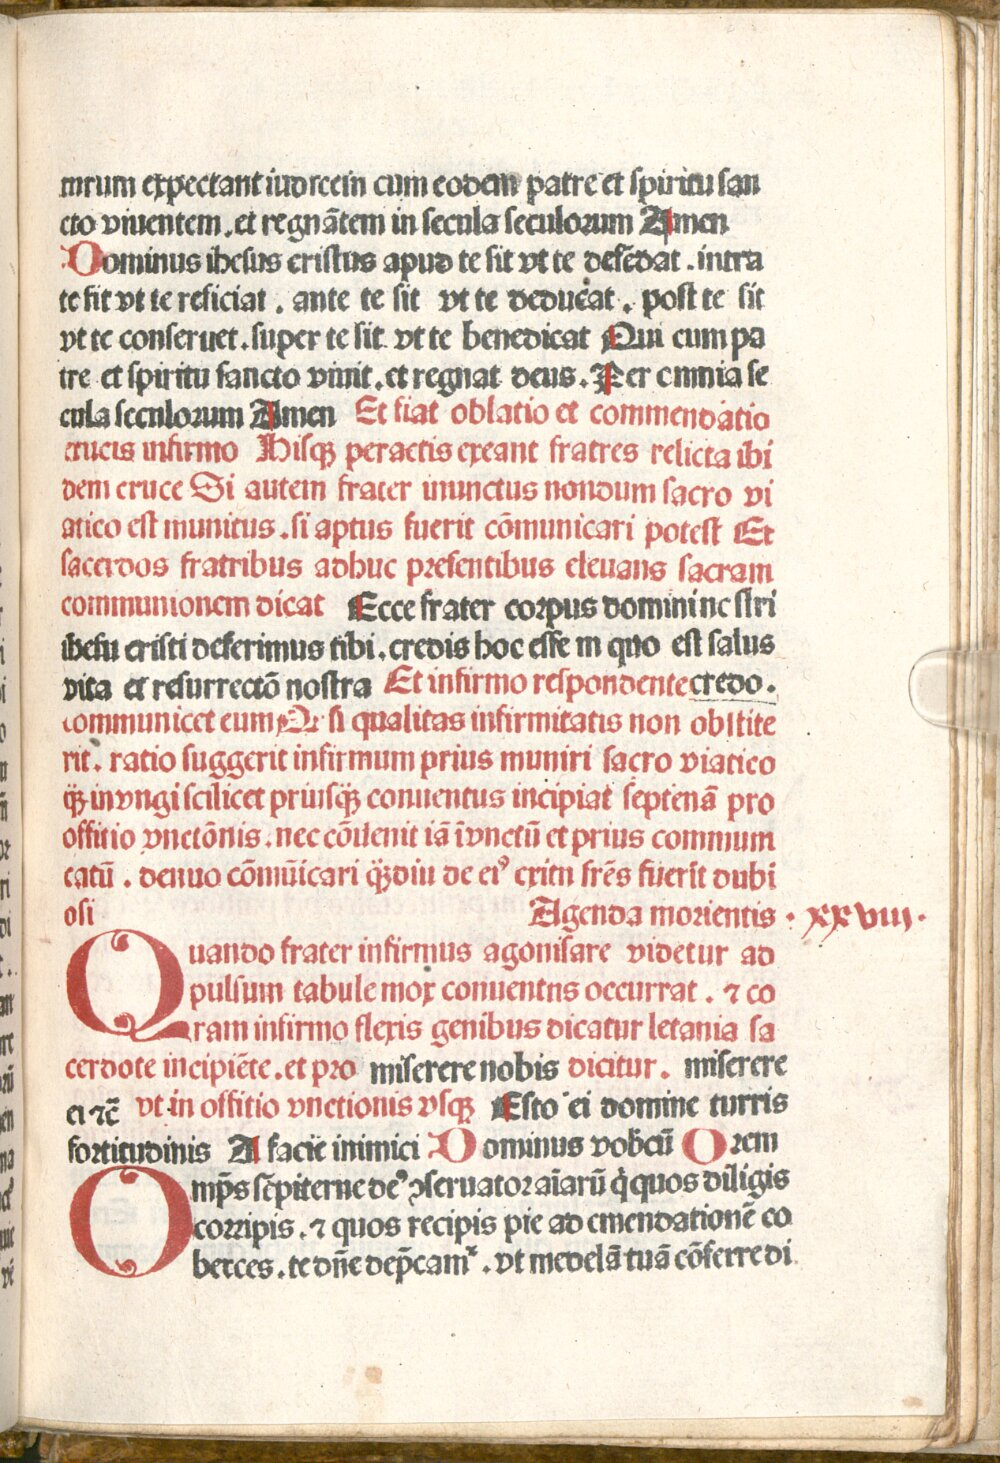 mrum expectant iudicem cum eodem patre et spiritu san
cto viuentem. et regnātem in secula seculorum Amen
Dominus ihesus cristus apud te sit vt te defēdat. intra
te sit vt te reficiat. ante te sit vt te deducat. post te sit
vt te conseruet. super te sit vt te benedicat Qui cum pa
tre et spiritu sancto viuit. et regnat deus. Per omnia se
cula seculorum Amen Et fiat oblatio et commendatio
crucis infirmo Hisqꝫ peractis exeant fratres relicta ibi
dem cruce Si autem frater inunctus nondum sacro vi
atico est munitus. si aptus fuerit cōmunicari potest Et
sacerdos fratribus adhuc presentibus eleuans sacram
communionem dicat Ecce frater corpus domini nostri
ihesu cristi deferimus tibi. credis hoc esse in quo est salus
vita et resurrectō nostra Et infirmo respondente credo.
communicet eum Qꝛ si qualitas infirmitatis non obstite
rit. ratio suggerit infirmum prius muniri sacro viatico
qꝫ inungi scilicet priusqꝫ conuentus incipiat septenā pro
offitio vnctōnis. nec cōuenit iā īvnctū et prius commun
catū. denuo cōmūicari qꝫdiu de eiꝰ exitu frēs fuerīt dubi
osi Agenda morientis. xxviii.
Quando frater infirmus agonisare videtur ad
pulsum tabule mox conuentus occurrat. ⁊ co
ram infirmo flexis genibus dicatur letania sa
cerdote incipiēte. et pro miserere nobis dicitur. miserere
ei ⁊c̄ vt in offitio vnctionis vsqꝫ Esto ei domine turris
fortitudinis A facie inimici Dominus vobcū Orem
Omp̄s sēpiterne deꝰ ꝯseruator aīarū q̇ quos diligis
corripis. ⁊ quos recipis pie ad emendationē co
herces. te dn̄e dep̄camꝰ. vt medelā tuā cōferre di